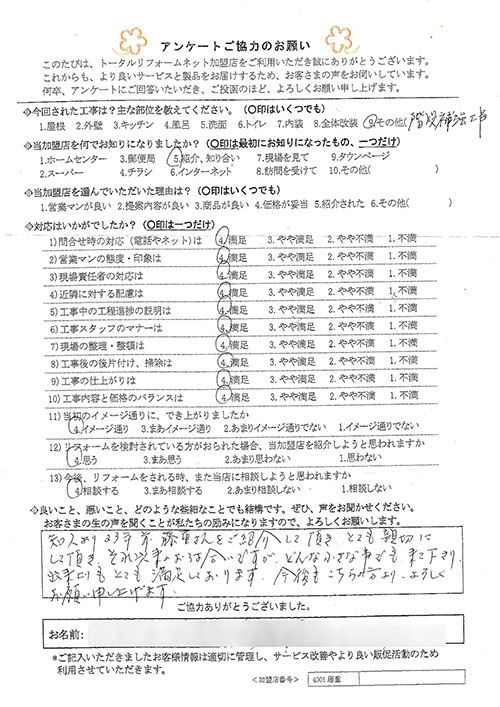 アンケートご協力のお願い
このたびは、トータルリフォームネット加盟店をご利用いただき誠にありがとうございます。
これからも、より良いサービスと製品をお届けするため、お客さまの声をお伺いしています。
何卒、アンケートにご回答いただき、ご投函のほど、よろしくお願い申し上げます。
◇今回された工事は?主な部位を教えてください。(○印はいくつでも)
1.屋根 2.外壁 3.キッチン 4.風呂 5.洗面 6.トイレ 7.内装 8.全体改装 9.その他( 階段補強工事
◇当加盟店を何でお知りになりましたか?(○印は最初にお知りになったもの、一つだけ)
1.ホームセンター 3.郵便局 5.紹介、知り合い 7.現場を見て 9.タウンページ
2.スーパー 4.チラシ 6.インターネット 8.訪問を受けて 10.その他( )
◇当加盟店を選んでいただいた理由は?(○印はいくつでも)
1.営業マンが良い 2.提案内容が良い 3.商品が良い 4.価格が妥当 5.紹介された 6.その他( )
◇対応はいかがでしたか?(○印は一つだけ)
1)問合せ時の対応(電話やネット)は 4.満足 3.やや満足 2.やや不満 1.不満
2)営業マンの態度・印象は 4.満足 3.やや満足 2.やや不満 1.不満
3)現場責任者の対応は 4.満足 3.やや満足 2.やや不満 1.不満
4)近隣に対する配慮は 4.満足 3.やや満足 2.やや不満 1.不満
5)工事中の工程進捗の説明は 4.満足 3.やや満足 2.やや不満 1.不満
6)工事スタッフのマナーは 4.満足 3.やや満足 2.やや不満 1.不満
7)現場の整理・整頓は 4.満足 3.やや満足 2.やや不満 1.不満
8)工事後の後片付け、掃除は 4.満足 3.やや満足 2.やや不満 1.不満
9)工事の仕上がりは 4.満足 3.やや満足 2.やや不満 1.不満
10)工事内容と価格のバランスは 4.満足 3.やや満足 2.やや不満 1.不満
11)当初のイメージ通りに、でき上がりましたか
4.イメージ通り 3.まあイメージ通り 2.あまりイメージ通りでない 1.イメージ通りでない
12)リフォームを検討されている方がおられた場合、当加盟店を紹介しようと思われますか
4.思う 3.まあ思う 2.あまり思わない 1.思わない
13)今後、リフォームをされる時、また当店に相談しようと思われますか
4.相談する 3.まあ相談する 2.あまり相談しない 1.相談しない
◎良いこと、悪いこと、どのような些細なことでも結構です。ぜひ、声をお聞かせください。
お客さまの生の声を聞くことが私たちの励みになりますので、よろしくお願いします。
知人より23年前 藤重さんをご紹介して頂き とても親切に
して頂き、それ以来のお付合いですが、どんな小さな事でも 来て下さり、
出来上りもとても満足しております。今後もこちらの方より、よろしく
お願い申し上げます。
ご協力ありがとうございました。
お名前:
*ご記入いただきましたお客様情報は適切に管理し、サービス改善やより良い販促活動のため
利用させていただきます。
<加盟店番号> 4001藤重